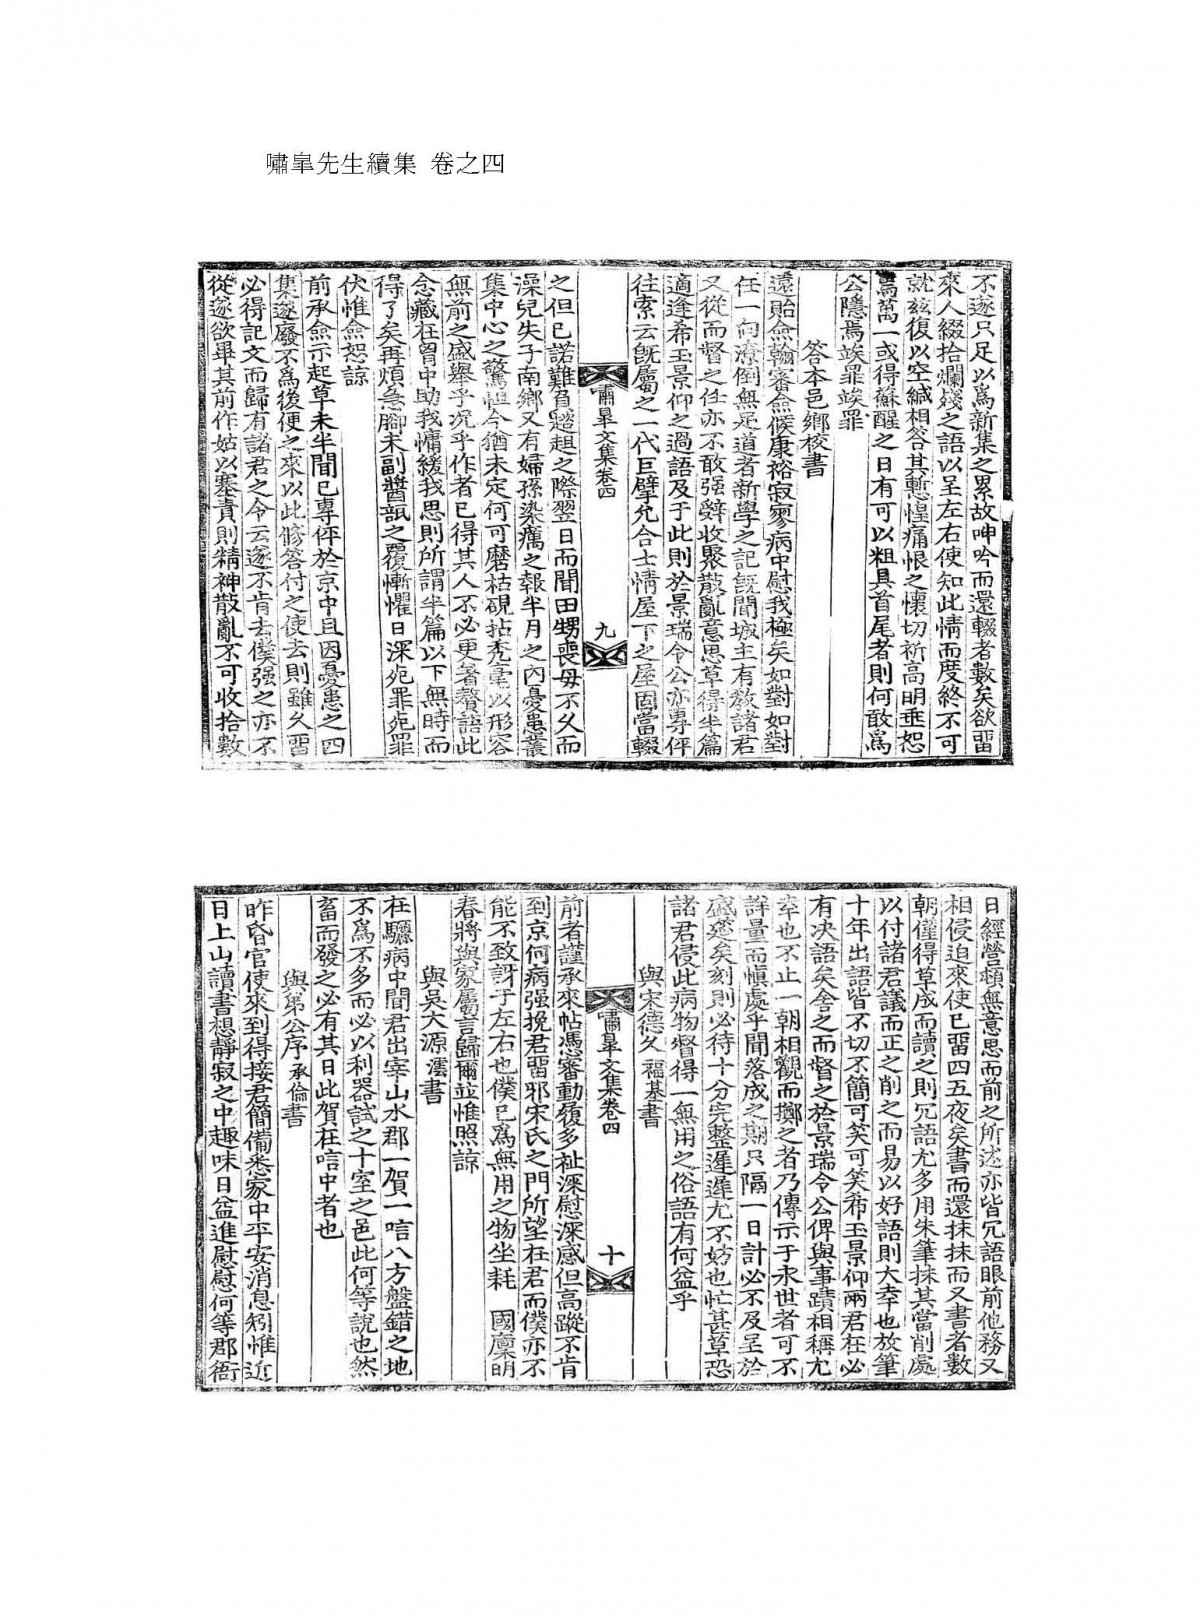 嘯皐先生續集 卷之四
不遂只足以爲新集之累故呻吟而還輟者數矣欲留
來人綴拾爛錢之語以呈左右使知此情而度終不可
就玆復以空緘相答其慙惶痛恨之懷切祈高明垂恕
焉萬一或得蘇醒之日有可以粗具首尾者則何敢爲
公隱焉竢罪竢罪
答本邑鄕校書
遠貽僉翰審僉候康裕寂寥病中慰我極矣如對如對
任一向潦倒無足道者新學之記旣聞城主有敎諸君
又從而督之任亦不敢强辭收聚散亂意思草得半篇
適逢希玉景仰之過語及于此則於景瑞令公亦專伻
往索云旣屬之一代巨擘允合士情屋下之屋固當輟
嘯皐文集卷四
九
之但已諾難食趑趄之際翌日而聞田甥喪母不久而
澡兒失子南鄕又有婦孫染癘之報半月之內憂患叢
集中心之驚怛今猶未定何可磨枯硯拈禿毫以形容
無前之盛擧乎况乎作者已得其人不必更著贅語此
念藏在胷中助我慵緩我思則所謂半篇以下無時而
得了矣再煩急脚未副醬瓿之覆慚懼日深宛罪宛罪
伏惟僉恕諒
前承僉示起草未半聞已專伻於京中且因憂患之四
集遂廢不爲後便之來以此修答付之使去則雖久留
必得記文而歸有諸君之令云遂不肯去僕强之亦不
從遂欲畢其前作姑以塞責則精神散亂不可收拾數
日經營頓無意思而前之所述亦皆冗語眼前他務又
相侵迫來使已留四五夜矣書而還抹抹而又書者數
朝僅得草成而讀之則冗語尤多用朱筆抹其當削處
以付諸君議而正之削之而易以好語則大幸也放筆
十年出語皆不切不簡可笑可笑希玉景仰兩君在必
有决語矣舍之而督之於景瑞令公俾與事蹟相稱尤
幸也不止一朝相觀而擲之者乃傳示于永世者可不
詳量而愼處乎聞落成之期只隔一日計必不及呈於
盛筵矣刻則必待十分完整遲遲尤不妨也忙甚草恐
諸君侵此病物督得一無用之俗語有何益乎
與宋德久 福基書
嘯皐文集卷四
十
前者謹承來帖憑審動履多祉深慰深感但高蹤不肯
到京何病强挽君留邪宋氏之門所望在君而僕亦不
能不致訝于左右也僕已爲無用之物坐耗 國廩明
春將與家屬言歸爾竝惟照諒
與吳大源 澐書
在驪病中聞君出宰山水郡一賀一唁八方盤錯之地
不爲不多而必以利器試之十室之邑此何等說也然
畜而發之必有其日此賀在唁中者也
與弟公序 承倫書
昨昏官使來到得接君簡備悉家中平安消息矧惟近
日上山讀書想靜寂之中趣味日益進慰慰何等郡衙